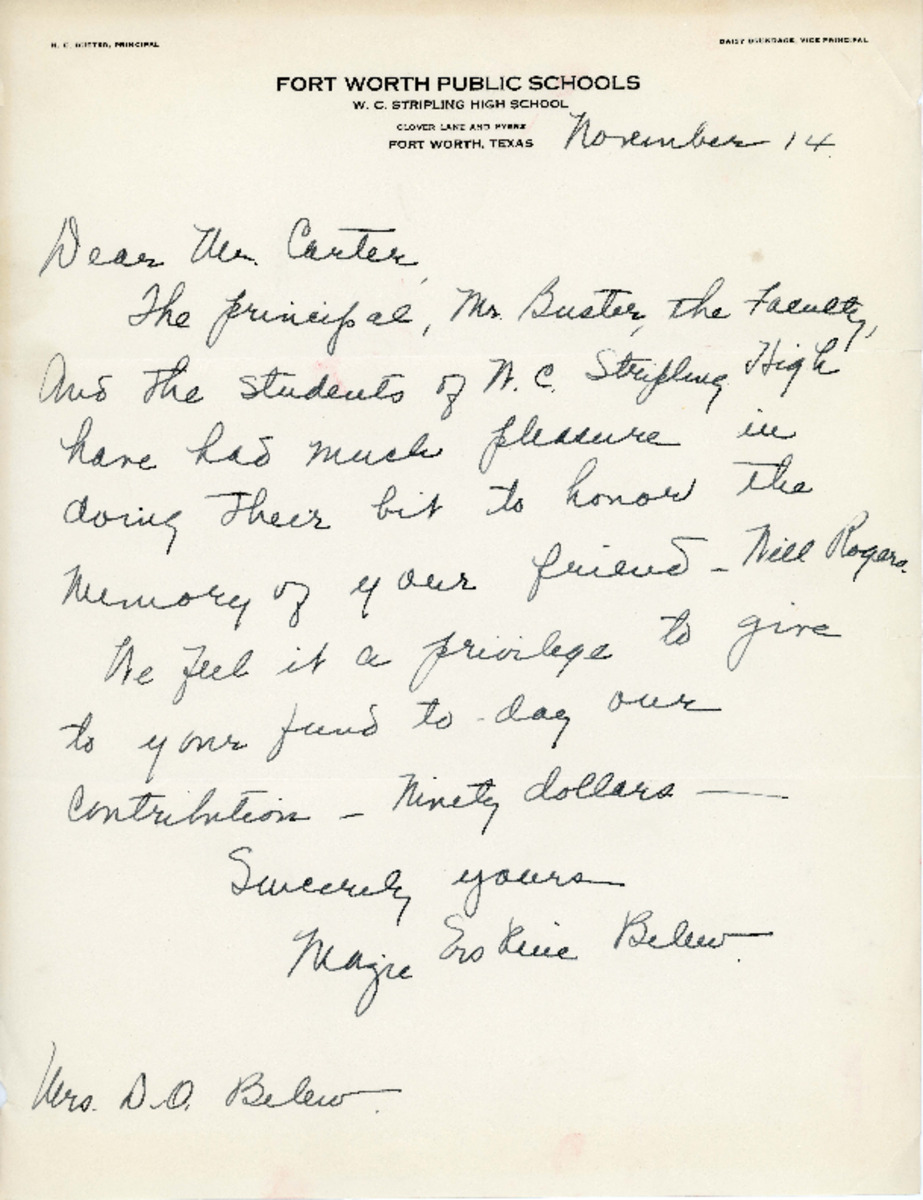 PRINCIPAL
VICE PRINCIPAL
FORT WORTH PUBLIC SCHOOLS
W. C. STRIPLING HIGH SCHOOL
CLOVER LANE AND
FORT WORTH, TEXAS
November 14
Dear Mr. Carter,
The principal, Mr. Buster, the Faculty,
and the students of W. C. Stripling High
have had much pleasure in
doing their bit to honor the
memory of your friend – Will Rogers.
We feel it a privilege to give
to your fund to-day our
contribution – Ninety dollars —
Sincerely yours
Erskine Belew.
Mrs. D.O. Belew.